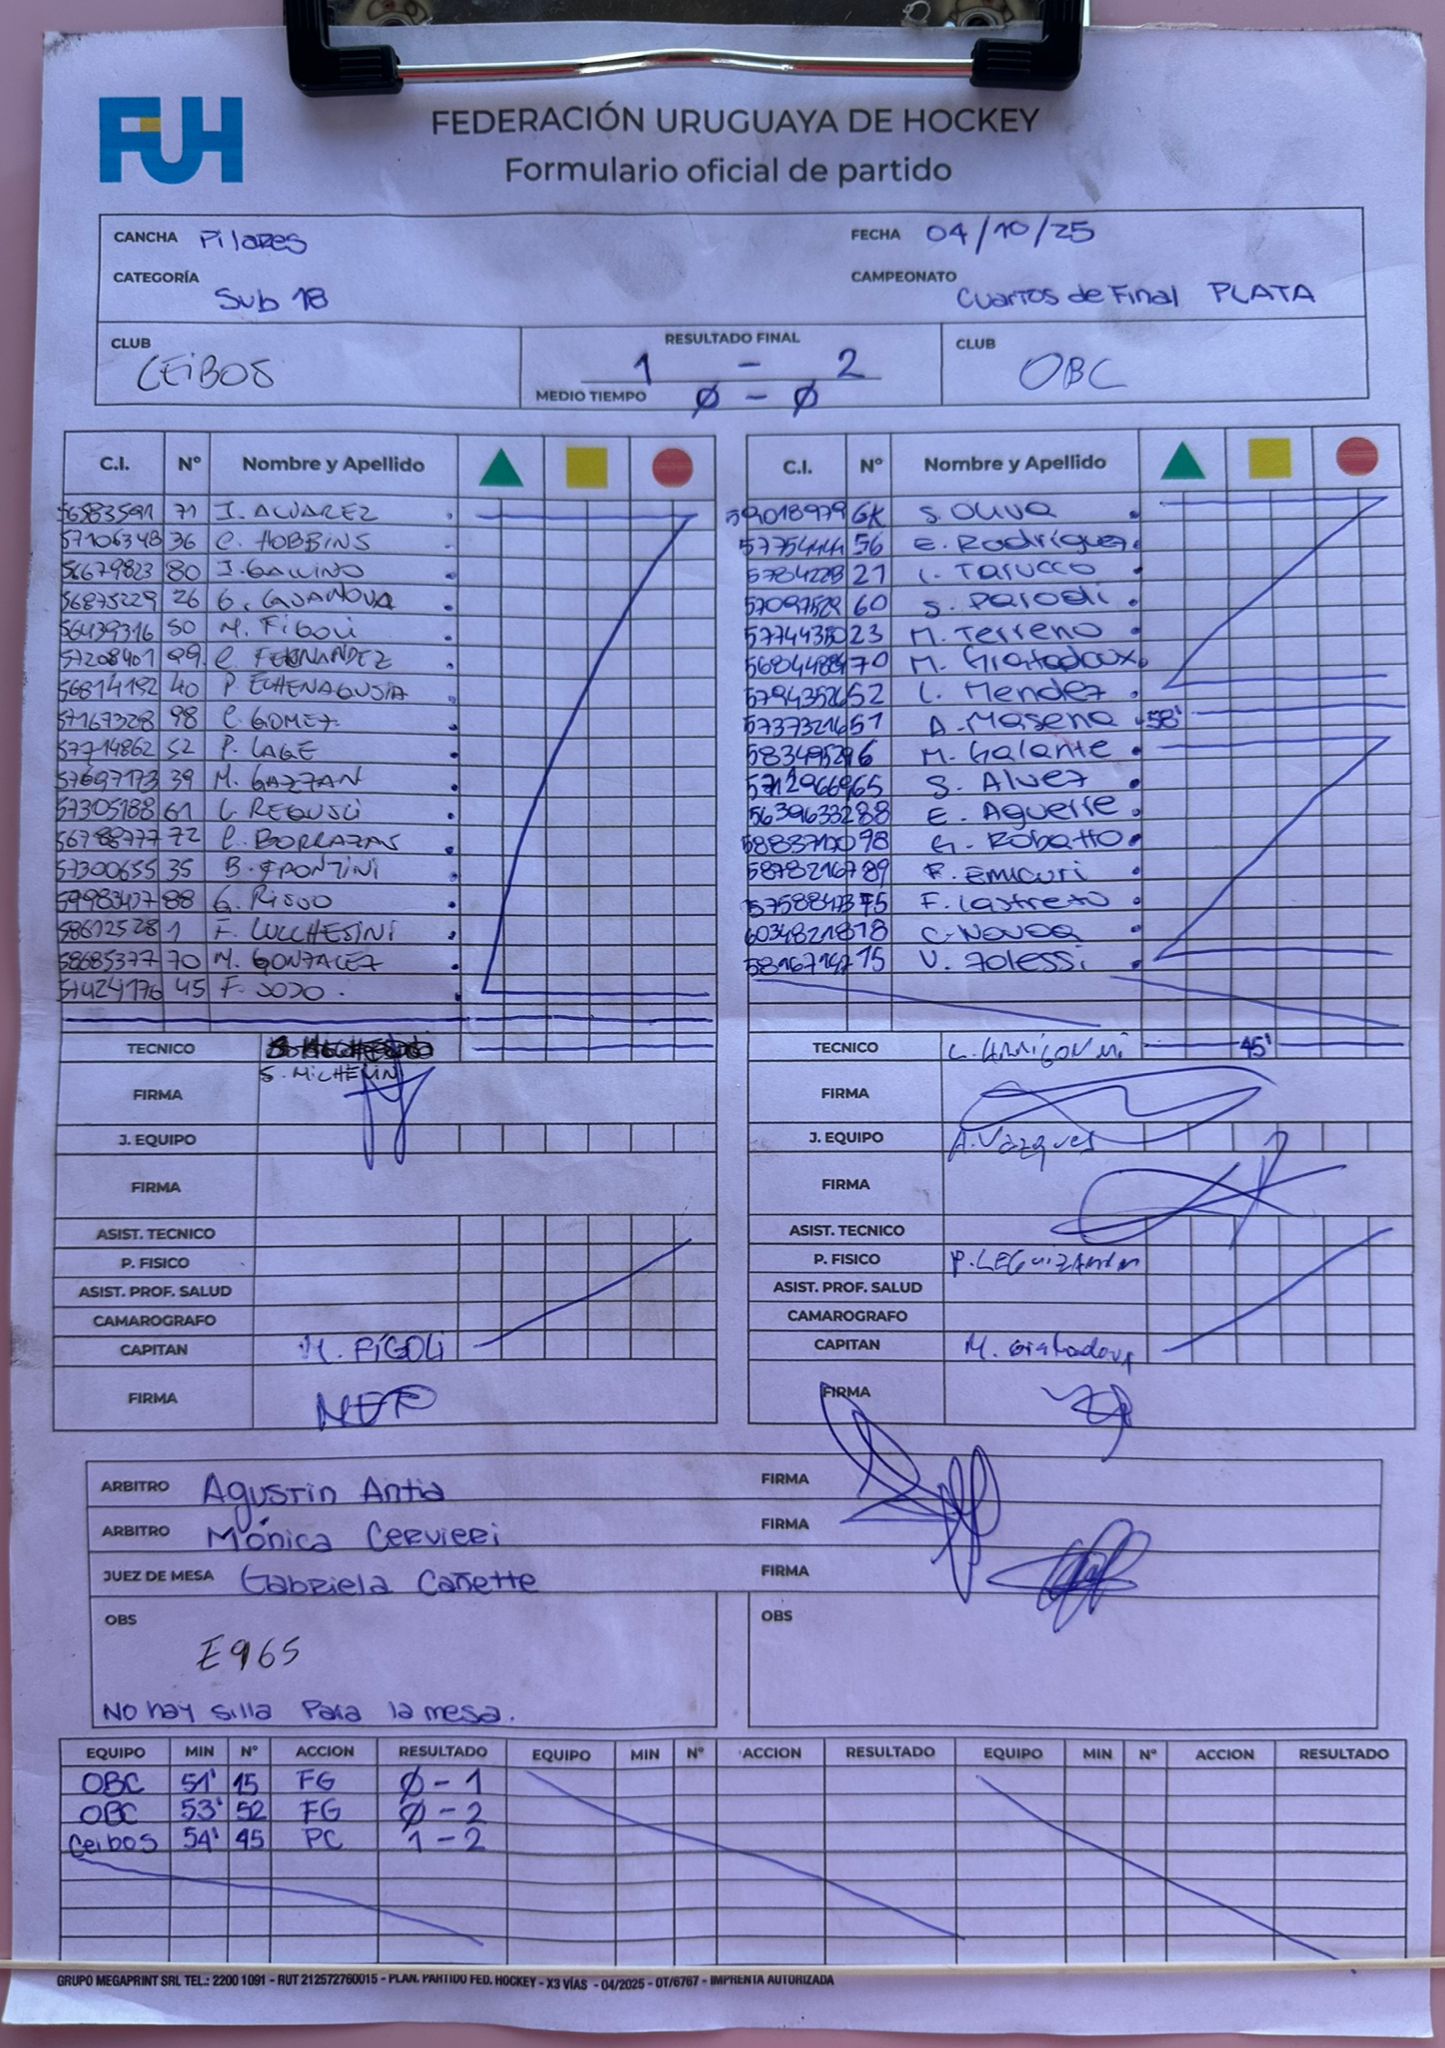 FUH
FEDERACIÓN URUGUAYA DE HOCKEY
Formulario oficial de partido
CANCHA Pilares
FECHA 04/10/25
CATEGORÍA Sub 18
CAMPEONATO Cuartos de Final PLATA
CLUB CEIBOS
RESULTADO FINAL 1 - 2
MEDIO TIEMPO Ø - Ø
CLUB OBC
C.I. Nº Nombre y Apellido
56583591 71 I. ALVAREZ
57106348 36 C. HOBBINS
56679823 80 J. GALLINO
56875229 26 G. CASANOVA
56439316 50 M. FIGOLI
57208401 99 C. FERNANDEZ
56814192 40 P. ECHENAGUSIA
57167328 98 C. GOMEZ
57714862 52 P. LAGE
57697173 39 M. GAZZAN
57305188 61 C. REGUSCI
56788777 72 C. BORRAZAS
57300655 35 B. FRONTINI
88 G. RISSO
58612528 1 F. LUCCHESINI
58685377 70 M. GONZALEZ
57424176 45 F. SOJO.
TECNICO
S. MICHELINI
FIRMA
J. EQUIPO
FIRMA
ASIST. TECNICO
P. FISICO
ASIST. PROF. SALUD
CAMAROGRAFO
CAPITAN M. FIGOLI
FIRMA
C.I. Nº Nombre y Apellido
59018979 GK S. Oliva
56 E. Rodriguez
21 L. Tarucco
60 S. Parodi
23 M. Terreno
70 M. Giatodaux
52 L. Mendez
51 A. Masena 58'
6 M. Galante
65 S. Alvez
88 E. Aguerre
98 G. Robatto
89 F. Emicuri
75 F. Lastreto
18 C. Novoa
15 V. Folessi
TECNICO L. ARRIGONI 45'
FIRMA
J. EQUIPO A. Vazquez
FIRMA
ASIST. TECNICO
P. FISICO P. LEGUIZAMON
ASIST. PROF. SALUD
CAMAROGRAFO
CAPITAN M. Giatodaux
FIRMA
ARBITRO Agustin Antia FIRMA
ARBITRO Mónica Cervieri FIRMA
JUEZ DE MESA Gabriela Cañette FIRMA
OBS
E965
No hay silla Para la mesa.
OBS
EQUIPO MIN Nº ACCION RESULTADO EQUIPO MIN Nº ACCION RESULTADO EQUIPO MIN Nº ACCION RESULTADO
OBC 51' 15 FG Ø - 1
OBC 53' 52 FG Ø - 2
Ceibos 54' 45 PC 1 - 2
GRUPO MEGAPRINT SRL TEL.: 2200 1091 - RUT 212572760015 - PLAN. PARTIDO FED. HOCKEY - X3 VÍAS - 04/2025 - OT/6767 - IMPRENTA AUTORIZADA